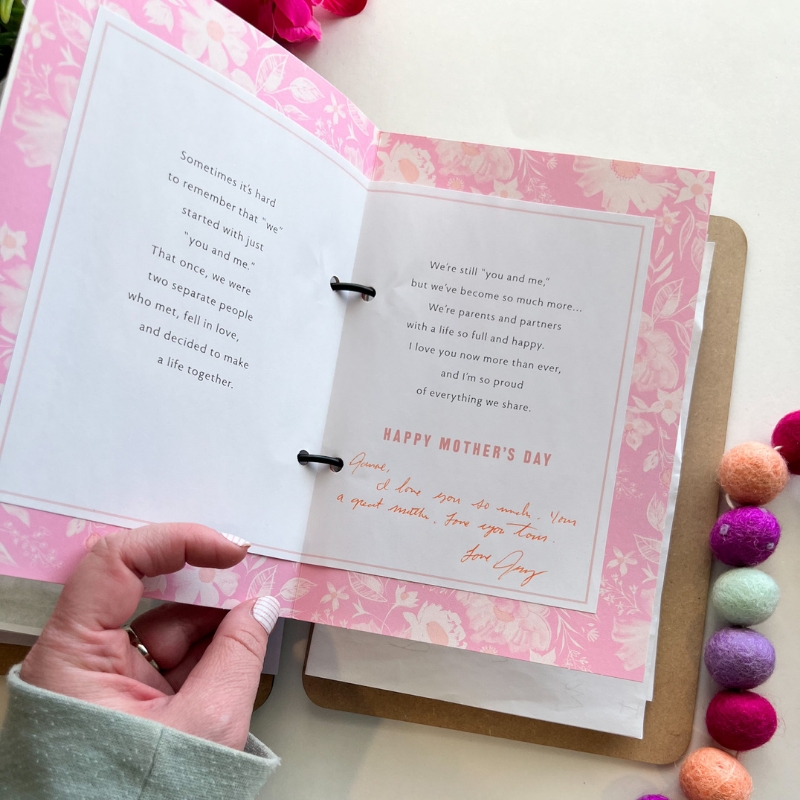 Sometimes it's hard
to remember that "we"
started with just
"you and me."
That once, we were
two separate people
who met, fell in love,
and decided to make
a life together.
We're still "you and me,"
but we've become so much more...
We're parents and partners
with a life so full and happy.
I love you now more than ever,
and I'm so proud
of everything we share.
HAPPY MOTHER'S DAY
I love you so much. Your
a great mother. Love you
Love